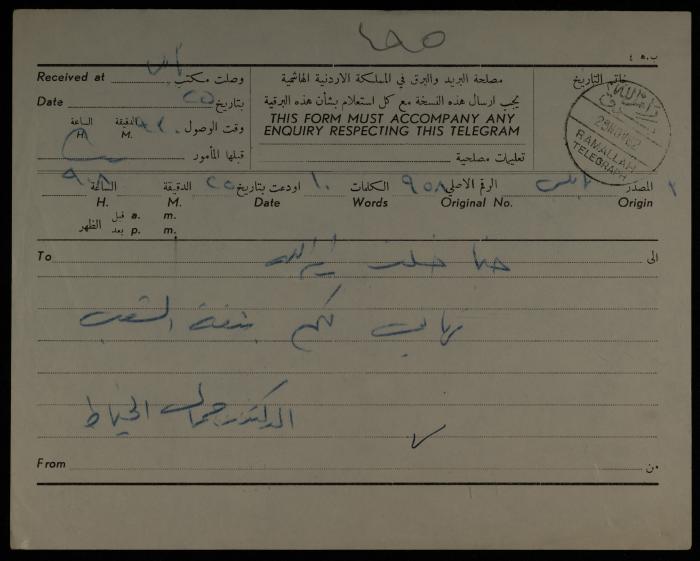 ب.ه ٤
Received at وصلت مكتب
Date ٢٥ بتاريخ
الدقيقة الساعة
H. M. وقت الوصول
قبلها المأمور
مصلحة البريد والبرق في المملكة الاردنية الهاشمية
يجب ارسال هذه النسخة مع كل استعلام بشأن هذه البرقية
THIS FORM MUST ACCOMPANY ANY
ENQUIRY RESPECTING THIS TELEGRAM
تعليمات مصلحية
خاتم التاريخ
RAMALLAH
TELEGRAPH
المصدر نابلس الرقم الاصلي ٩٥٨ الكلمات ١٠ اودعت بتاريخ ٢٥ الدقيقة الساعة
Origin Original No. Words Date M. H.
قبل a. m.
بعد p. m. الظهر
To حنا خلف رام الله الى
تهانينا لكم بثقة الشعب
الدكتور جمال الخياط
From من